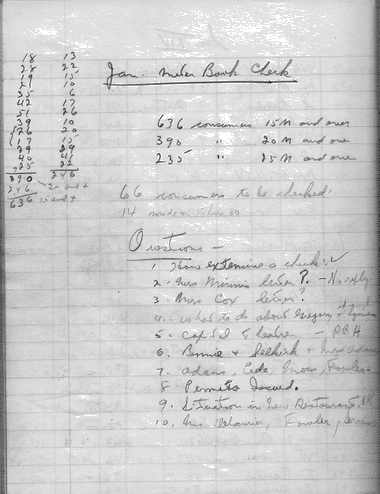 18 13
28 22
19 15
21 10
35 6
42 17
51 26
39 10
26 20
17 15
29 29
40 41
25 22
390 246
246 20 and +
636 15 and +
Jan. Meter Book Check
636 consumers 15 M and over
390 " 20 M and over
235 " 25 M and over
66 consumers to be checked
14
Questions -
1. How extensive a check? ✓
2. Mrs Morris letter? - No reply
3. Mrs Cox letter?
4. What to do about Gregory &
5. Capitol Theatre - RBH
6. Bennie & Selkirk & Mrs Adams
7. Adams, Eide, Fowler
8. Permits Issued.
9. Situation in New Restaurant
10. Mrs. Fowler,